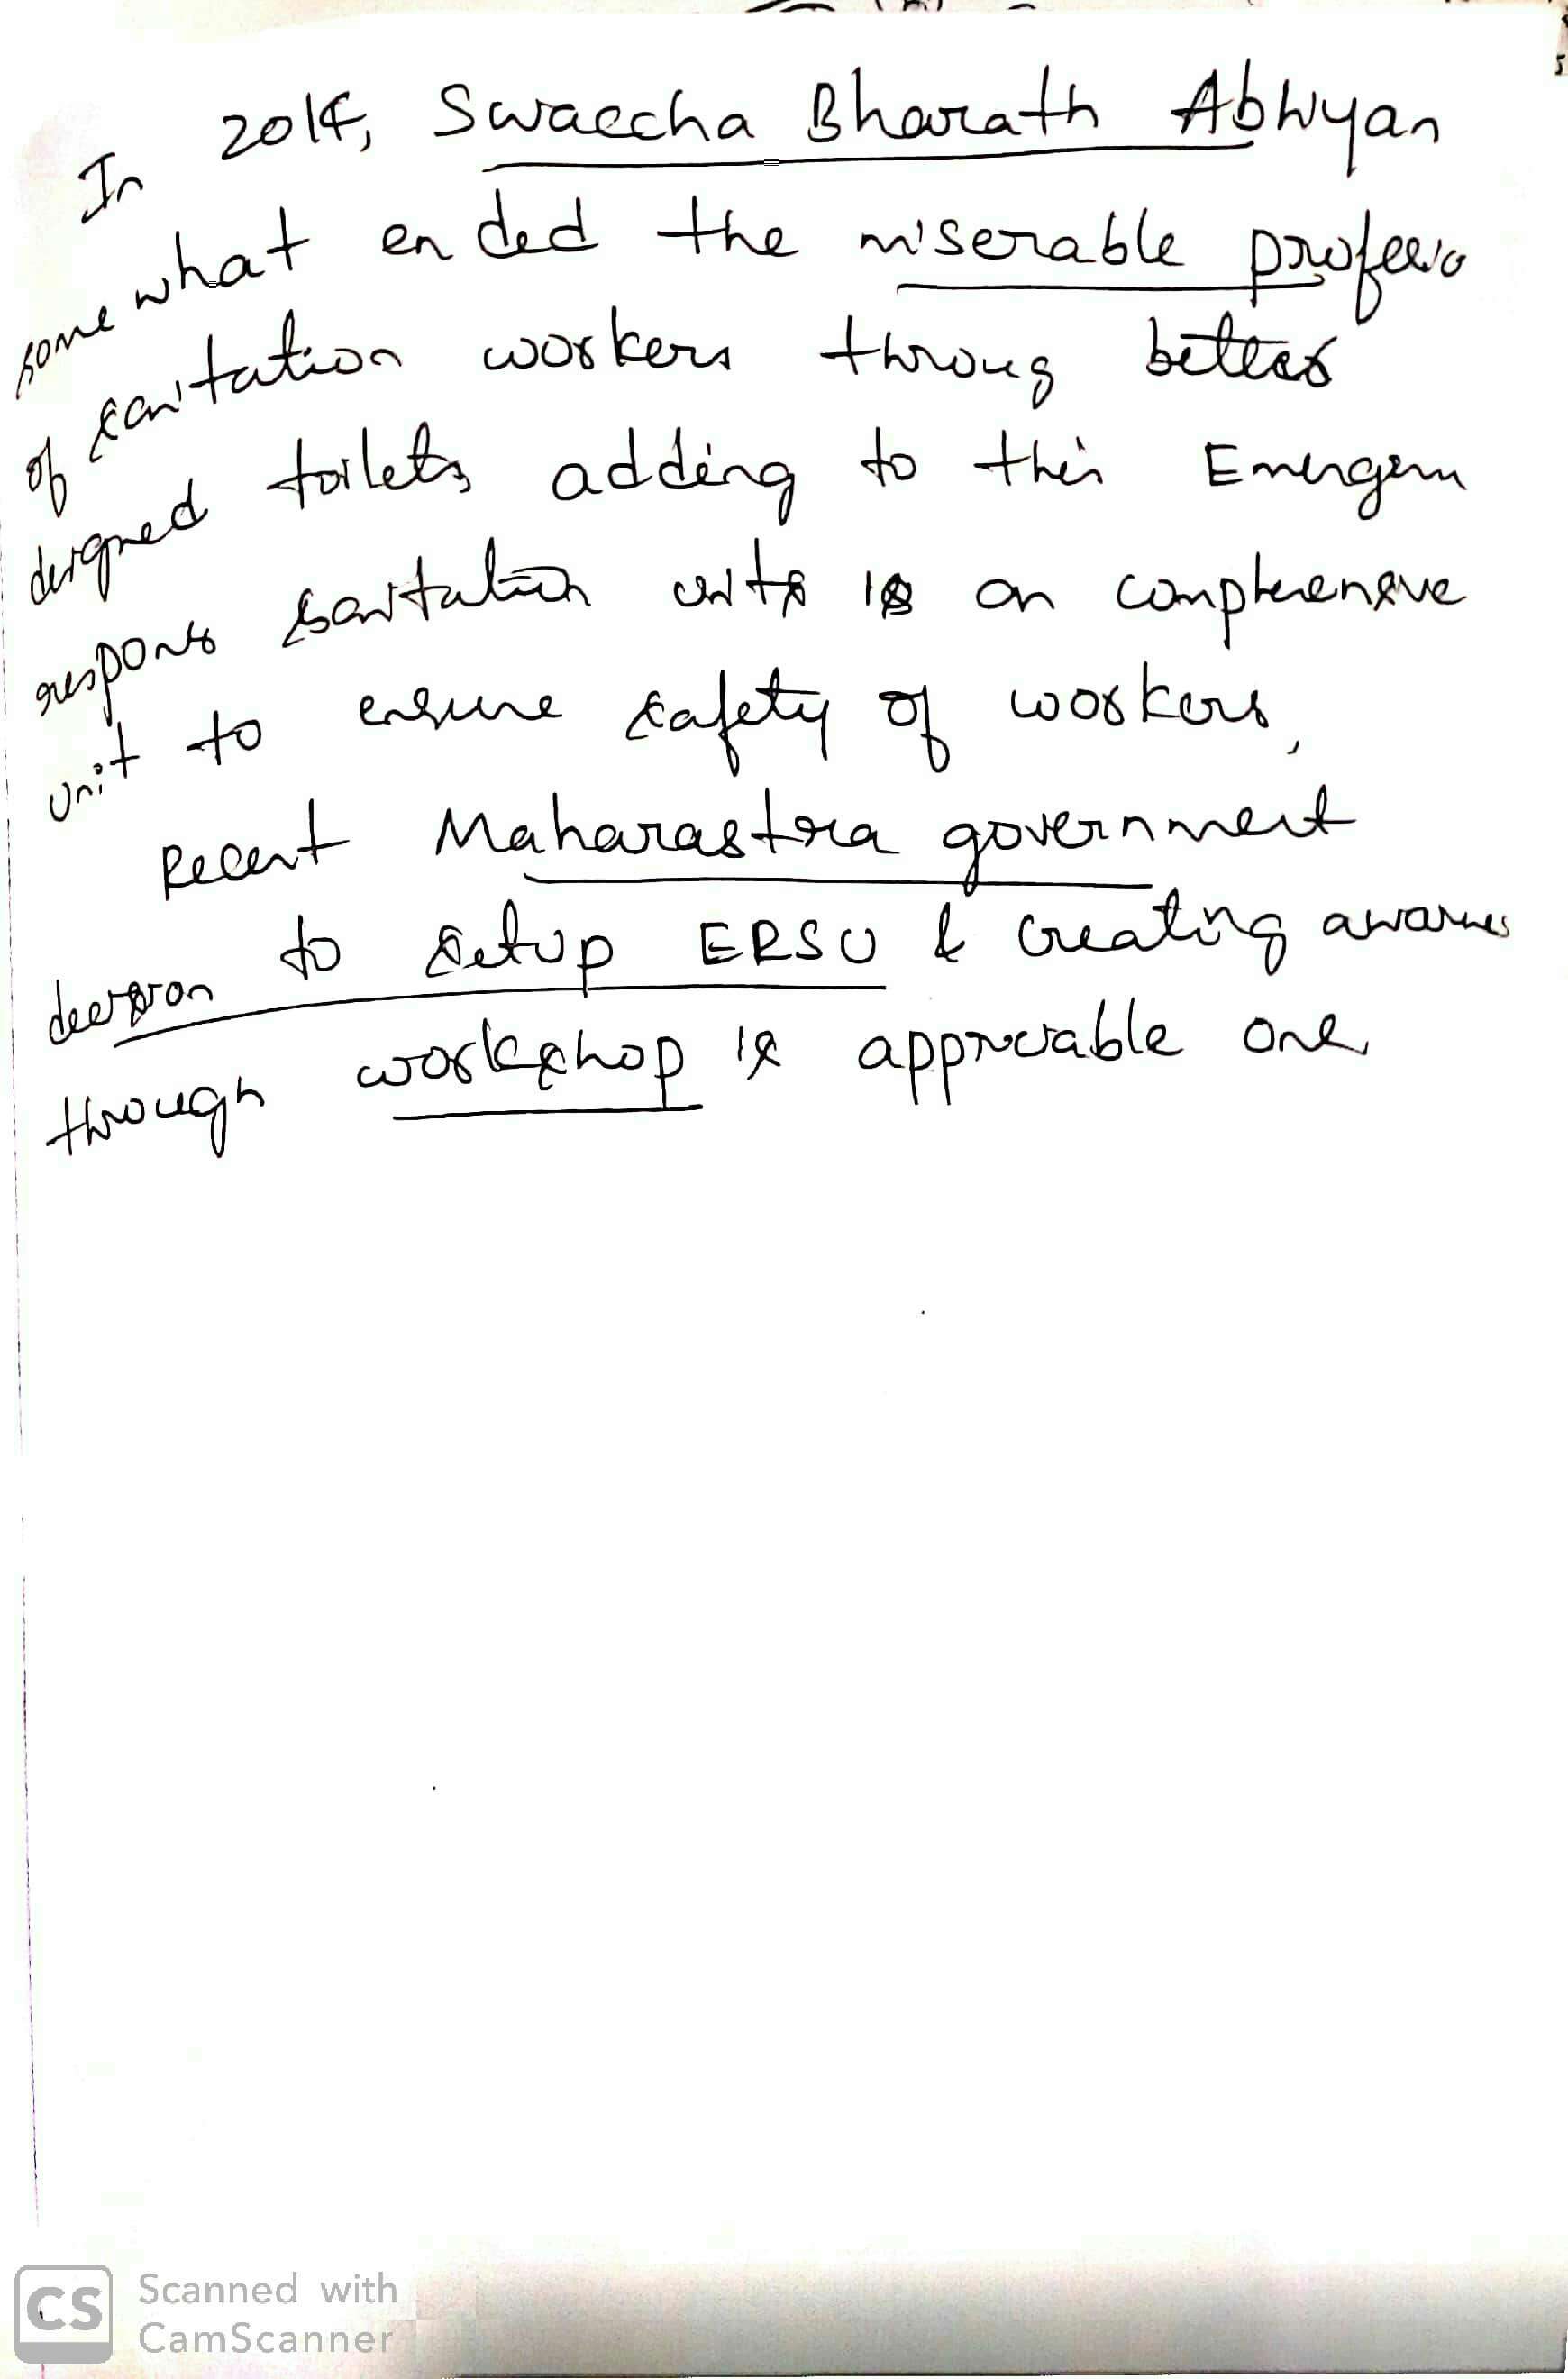 In 2014, Swaccha Bharath Abhiyan
some what ended the miserable professio
of sanitation workers throug better
designed toilets, adding to this Emergen
respons sanitation units is an comprehensive
unit to ensure safety of workers,
Recent Maharastra government
decision to setup ERSU & creating awarnes
through workshop is appreciable one
CS Scanned with
CamScanner